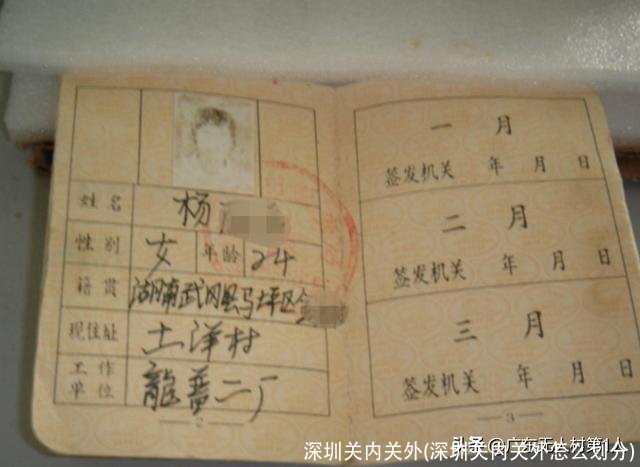 姓名 杨
性别 女 年龄 24
籍贯 湖南武冈县马坪区
现住址 土洋村
工作单位 龍萼二厂
— 2 —
一 月
签发机关 年 月 日
二 月
签发机关 年 月 日
三 月
签发机关 年 月 日
— 3 —
头条 @广东无人村第1人
深圳关内关外(深圳关内关外怎么划分)